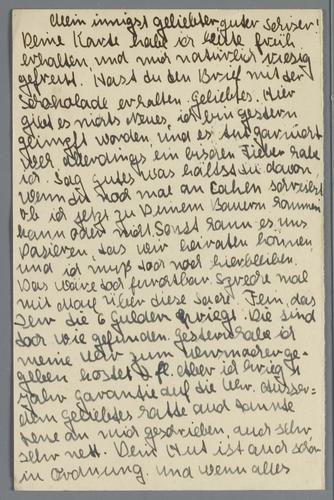 Mein innigst geliebter guter Schnser!
Deine Karte habe ich heute früh
erhalten, und mich natürlich riesig
gefreut. Hast du den Brief mit der
Schokolade erhalten. Geliebtes. Hier
gibt es nichts Neues, ich bin gestern
geimpft worden, und es tut gar nicht
weh allerdings ein bischen Fieber habe
ich. Sag gutes was hältst du davon,
wenn du noch mal an Cahen schreibst
ob ich jetzt zu Deinem Bauern kommen
kann oder nicht. Sonst kann es uns
Pasieren, das wir heiraten können
und ich muß doch noch hierbleiben.
Das wäre doch furchtbar. Spreche mal
mit über diese Sache. Fein, das
Du die 6 Gulden kriegst. Die sind
doch wie gefunden. Gestern habe ich
meine Uhr zum Uhrmacher ge-
geben kostet 2 fl. Aber ich krieg 1
Jahr Garantie auf die Uhr. Ausser-
dem geliebtes hatte auch
an mich geschrieben, auch sehr
sehr nett. Dein Hut ist auch schon
in Ordnung. Und wenn alles